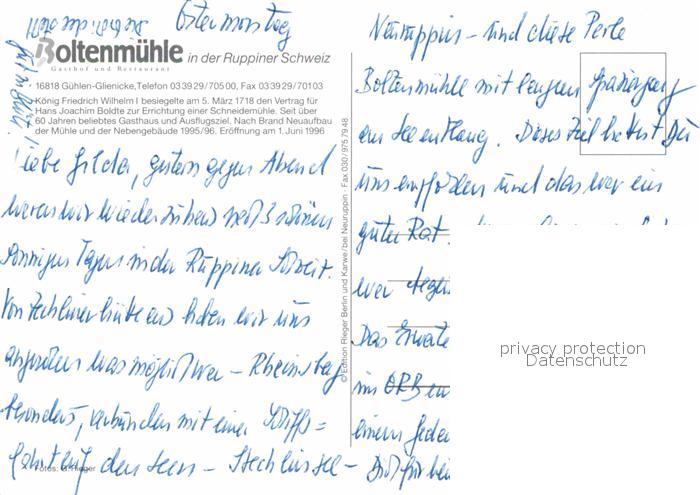 Ostermontag
Boltenmühle in der Ruppiner Schweiz
Gasthof und Restaurant
16818 Gühlen-Glienicke, Telefon 033929/70500, Fax 033929/70103
König Friedrich Wilhelm I besiegelte am 5. März 1718 den Vertrag für
Hans Joachim Boldte zur Errichtung einer Schneidemühle. Seit über
60 Jahren beliebtes Gasthaus und Ausflugsziel. Nach Brand Neuaufbau
der Mühle und der Nebengebäude 1995/96. Eröffnung am 1. Juni 1996
Liebe Gilda, gestern gegen Abend
waren wir wieder zuhaus nach 3 schönen
sonnigen Tagen in der Ruppiner Schweiz.
Von Zechlinerhütte aus haben wir uns
angesehen was möglich war – Rheinsberg
besonders, verbunden mit einer Schiffs=
fahrt auf den Seen – Stechlinsee –
Fotos: G. Rieger
© Edition Rieger Berlin und Karwe/bei Neuruppin · Fax 030/975 79 48
Neuruppin – und diese Perle
Boltenmühle mit langem Spaziergang
am See entlang. Dieses Ziel hattest Du
uns empfohlen und das war ein
guter Rat.
war
Das
im ORB
einem
privacy protection
Datenschutz